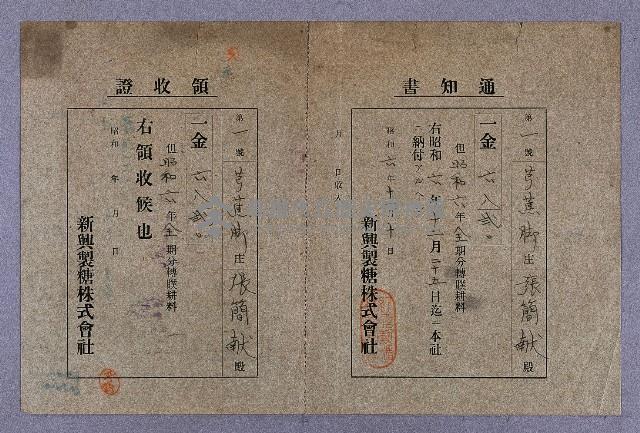 通知書
第一號
芎蕉脚庄張簡献殿
一金
六八弐
但昭和六年全期分轉贌耕料
右昭和六年十二月二十五日迄二本社
納付
昭和六年十月十日
新興製糖株式會社
月 日收入
領收證
第一號
芎蕉脚庄張簡献殿
一金
六八弐
但昭和六年全期分轉贌耕料
右領收候也
昭和 年 月 日
新興製糖株式會社